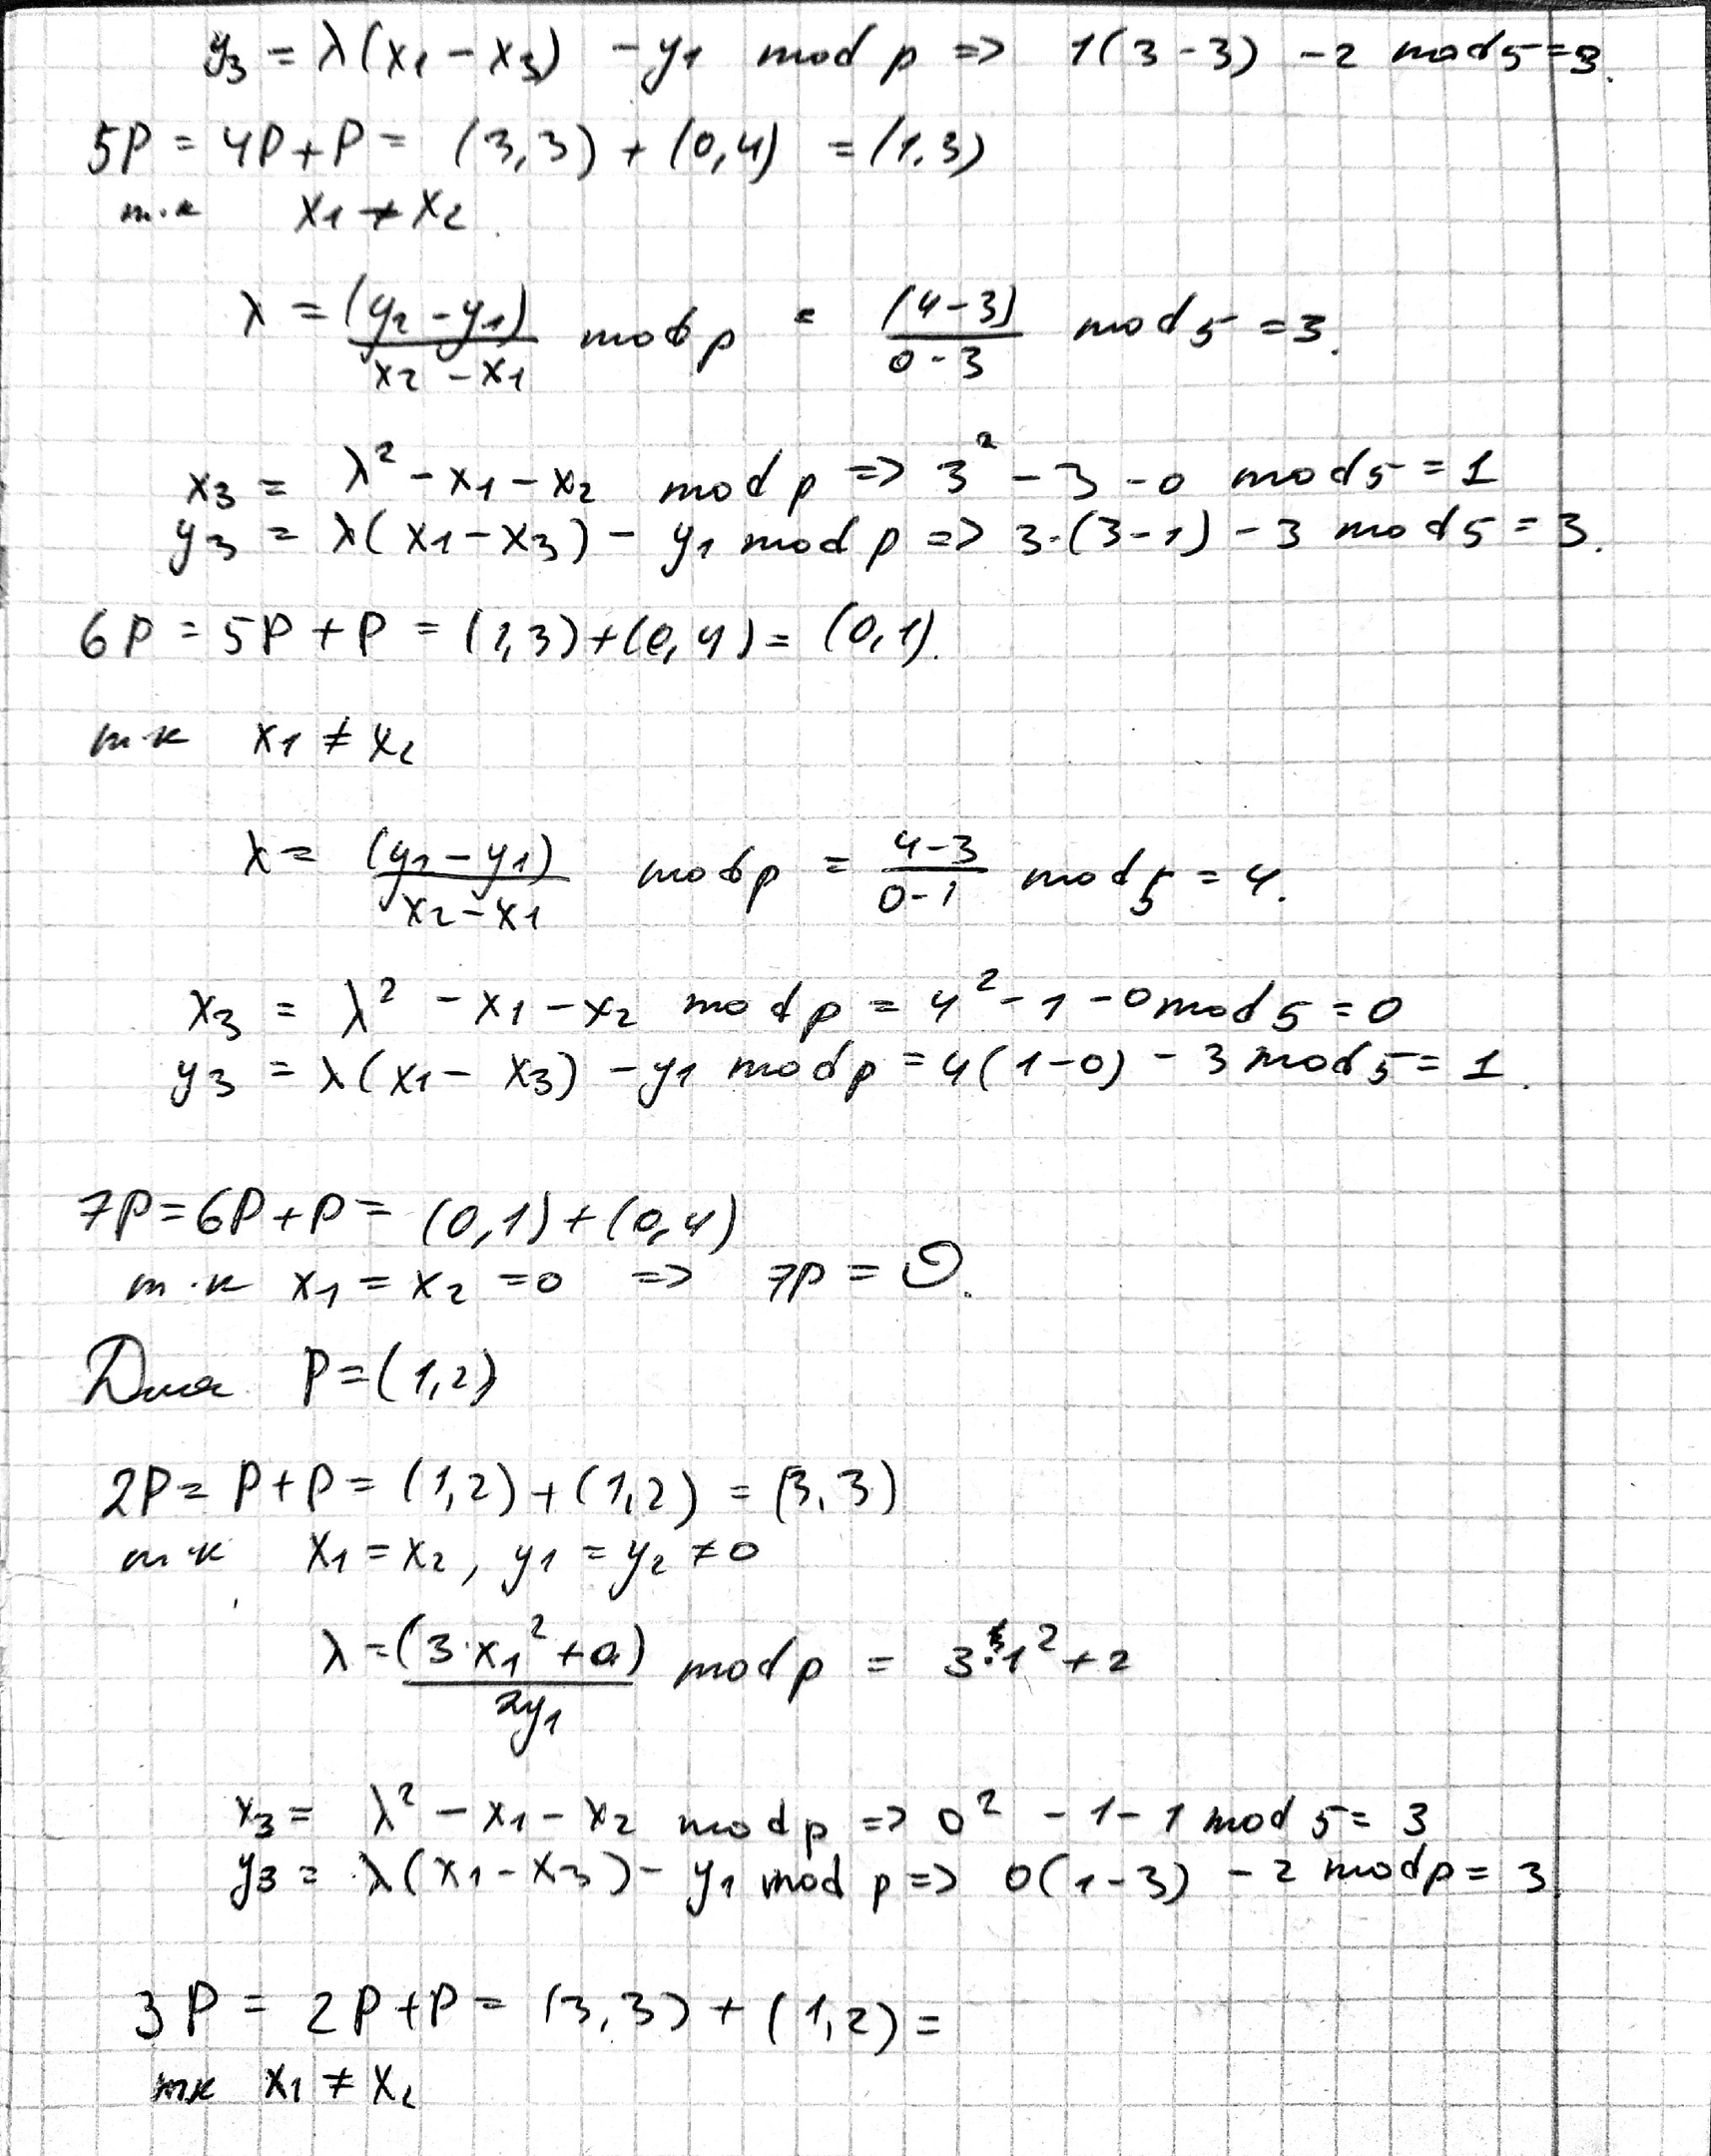 y₃ = λ(x₁ − x₃) − y₁ mod p => 1(3 − 3) − 2 mod 5 = 3.
5P = 4P + P = (3,3) + (0,4) = (1,3)
т.к x₁ ≠ x₂.
λ = (y₂ − y₁) / (x₂ − x₁) mod p = (4 − 3) / (0 − 3) mod 5 = 3.
x₃ = λ² − x₁ − x₂ mod p => 3² − 3 − 0 mod 5 = 1
y₃ = λ(x₁ − x₃) − y₁ mod p => 3·(3 − 1) − 3 mod 5 = 3.
6P = 5P + P = (1,3) + (0,4) = (0,1).
т.к x₁ ≠ x₂
λ = (y₂ − y₁) / (x₂ − x₁) mod p = (4 − 3) / (0 − 1) mod 5 = 4.
x₃ = λ² − x₁ − x₂ mod p = 4² − 1 − 0 mod 5 = 0
y₃ = λ(x₁ − x₃) − y₁ mod p = 4(1 − 0) − 3 mod 5 = 1.
7P = 6P + P = (0,1) + (0,4)
т.к x₁ = x₂ = 0 => 7P = O.
Для P = (1,2)
2P = P + P = (1,2) + (1,2) = (3,3)
т.к x₁ = x₂, y₁ = y₂ ≠ 0
λ = (3·x₁² + a) / 2y₁ mod p = 3·1² + 2
x₃ = λ² − x₁ − x₂ mod p => 0² − 1 − 1 mod 5 = 3
y₃ = λ(x₁ − x₃) − y₁ mod p => 0(1 − 3) − 2 mod p = 3
3P = 2P + P = (3,3) + (1,2) =
тк x₁ ≠ x₂